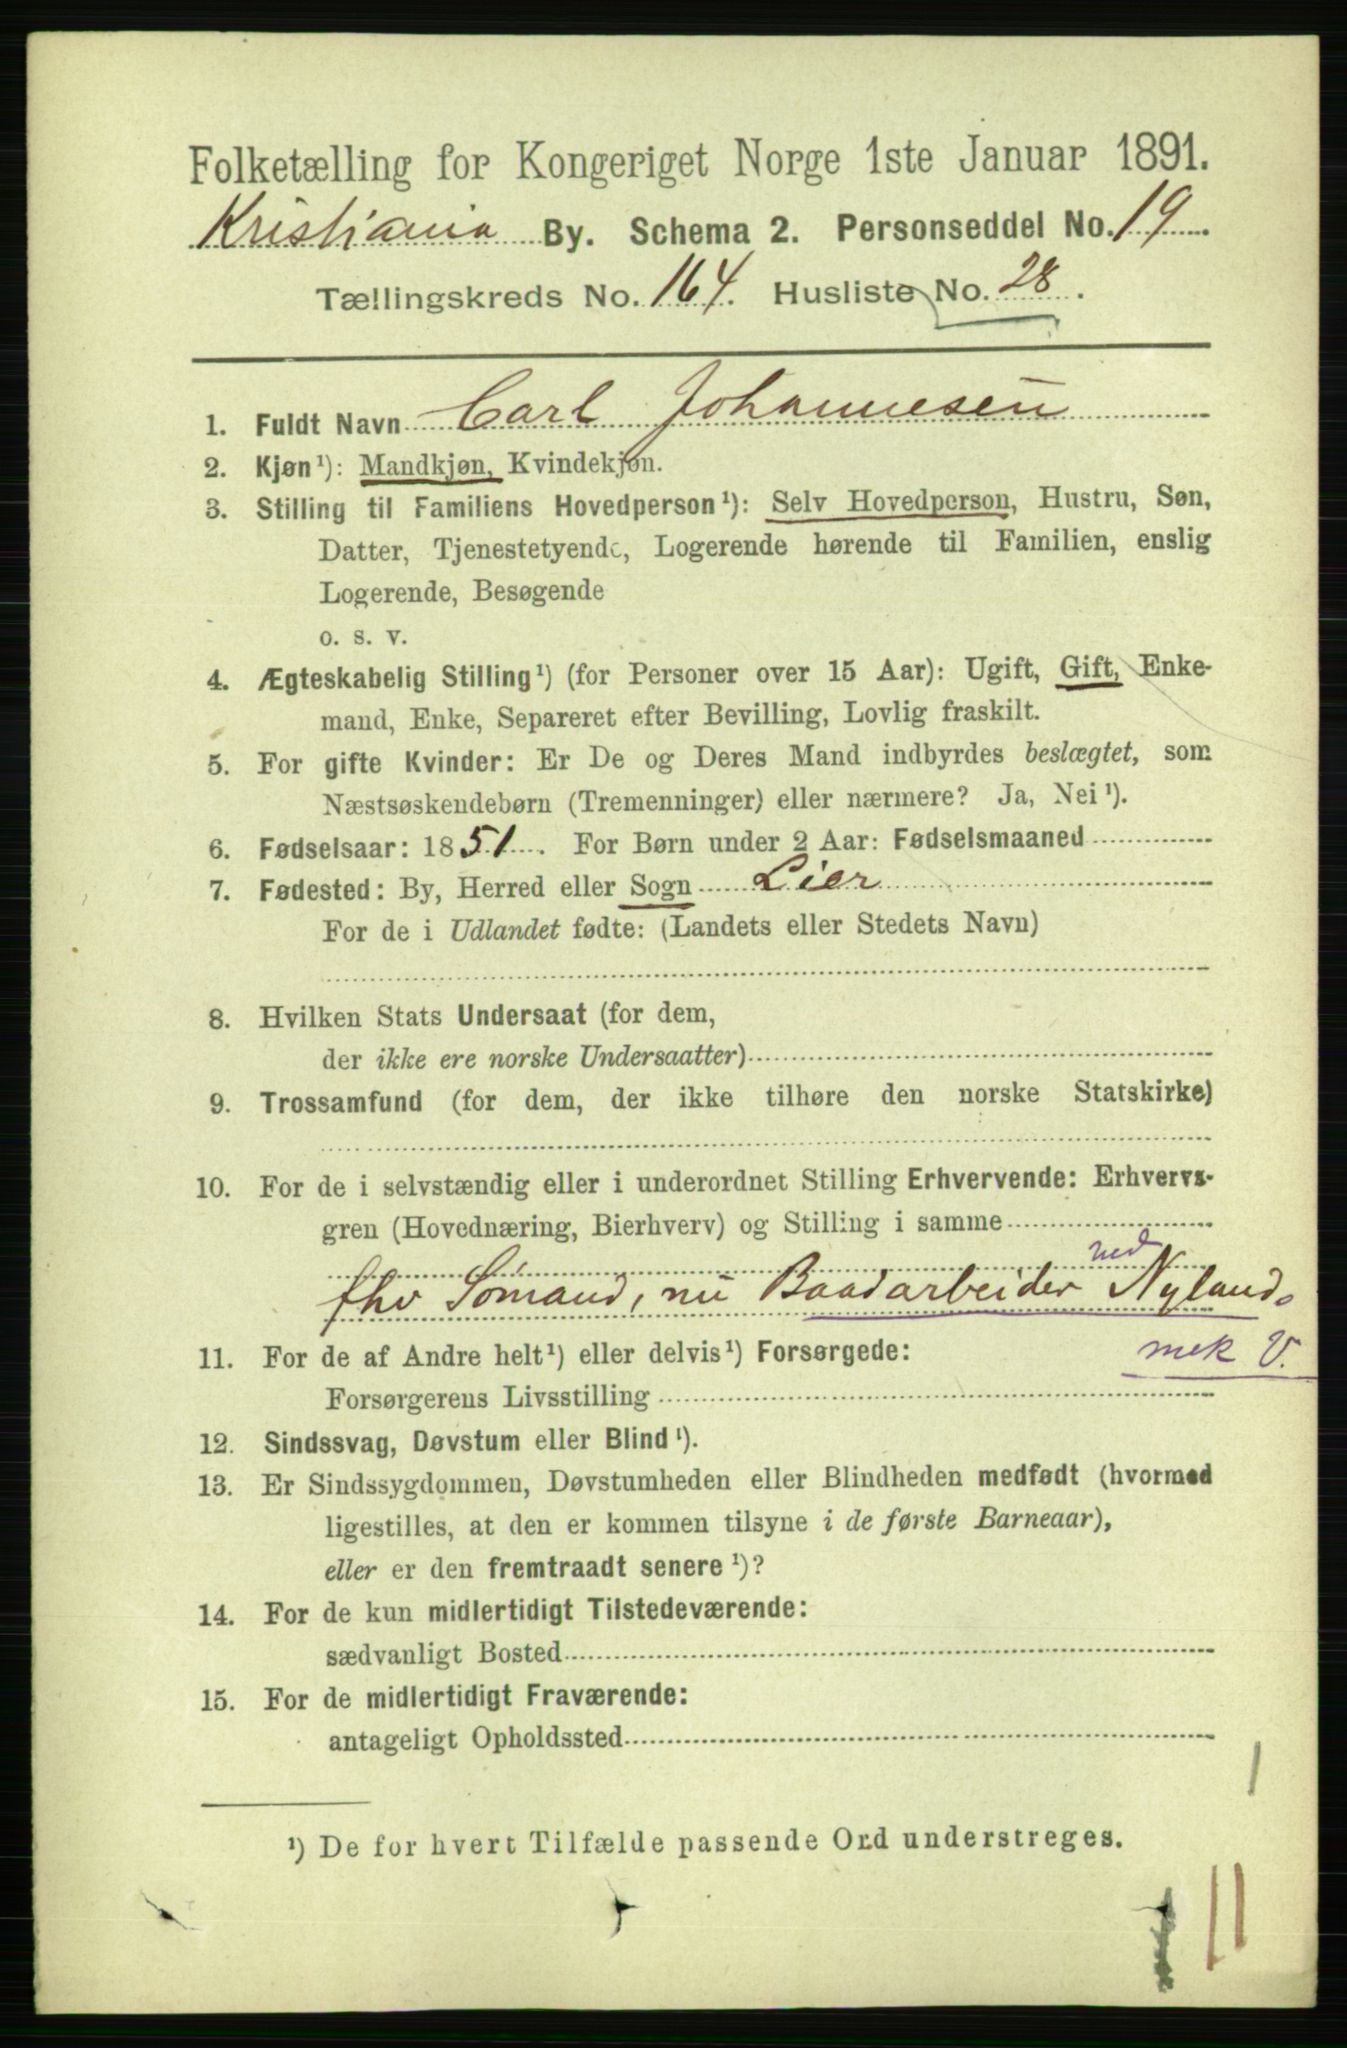 Folketælling for Kongeriget Norge 1ste Januar 1891.
Kristiania By. Schema 2. Personseddel No. 19
Tællingskreds No. 164. Husliste No. 28.
1. Fuldt Navn Carl Johannesen
2. Kjøn¹): Mandkjøn, Kvindekjøn.
3. Stilling til Familiens Hovedperson¹): Selv Hovedperson, Hustru, Søn,
Datter, Tjenestetyende, Logerende hørende til Familien, enslig
Logerende, Besøgende
o. s. v.
4. Ægteskabelig Stilling¹) (for Personer over 15 Aar): Ugift, Gift, Enke-
mand, Enke, Separeret efter Bevilling, Lovlig fraskilt.
5. For gifte Kvinder: Er De og Deres Mand indbyrdes beslægtet, som
Næstsøskendebørn (Tremenninger) eller nærmere? Ja, Nei¹).
6. Fødselsaar: 1851. For Børn under 2 Aar: Fødselsmaaned
7. Fødested: By, Herred eller Sogn Lier
For de i Udlandet fødte: (Landets eller Stedets Navn)
8. Hvilken Stats Undersaat (for dem,
der ikke ere norske Undersaatter)
9. Trossamfund (for dem, der ikke tilhøre den norske Statskirke)
10. For de i selvstændig eller i underordnet Stilling Erhvervende: Erhvervs-
gren (Hovednæring, Bierhverv) og Stilling i samme
ved
fhv Sømand, nu Baadarbeider Nyland.
mek V.
11. For de af Andre helt¹) eller delvis¹) Forsørgede:
Forsørgerens Livsstilling
12. Sindssvag, Døvstum eller Blind¹).
13. Er Sindssygdommen, Døvstumheden eller Blindheden medfødt (hvormed
ligestilles, at den er kommen tilsyne i de første Barneaar),
eller er den fremtraadt senere¹)?
14. For de kun midlertidigt Tilstedeværende:
sædvanligt Bosted
15. For de midlertidigt Fraværende:
antageligt Opholdssted
¹) De for hvert Tilfælde passende Ord understreges.